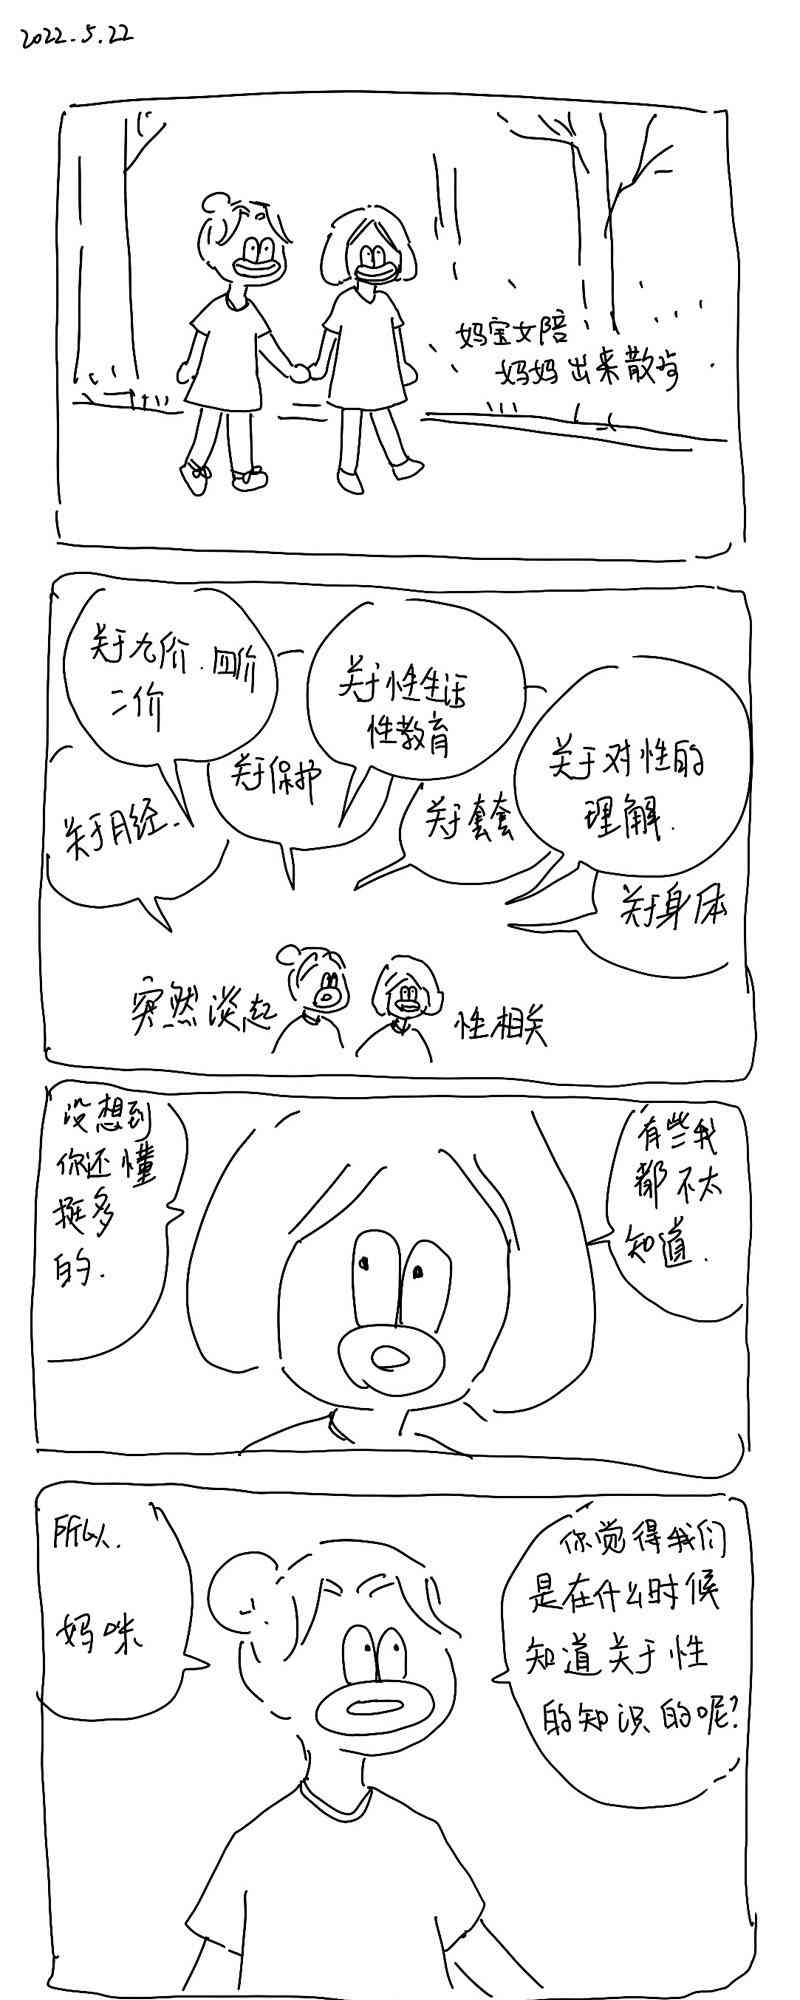 2022.5.22
妈宝女陪
妈妈出来散步
关于九价.四价
二价
关于性生活
性教育
关于对性的
理解.
关于月经.
关于保护
关于套套
关于身体
突然谈起
性相关
没想到
你还懂
挺多
的.
有些我
都不太
知道.
所以.
妈咪
你觉得我们
是在什么时候
知道关于性
的知识的呢?